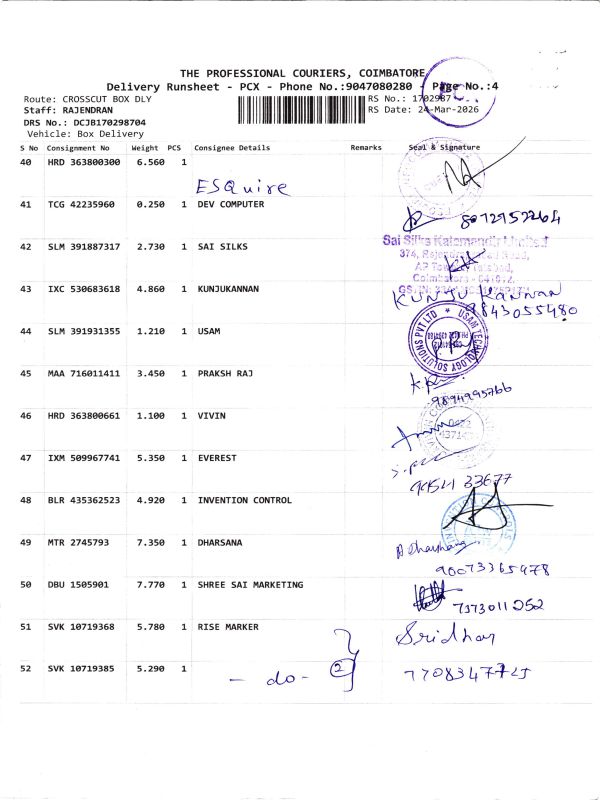 THE PROFESSIONAL COURIERS, COIMBATORE
Delivery Runsheet - PCX - Phone No.:9047080280 - Page No.:4
Route: CROSSCUT BOX DLY
RS No.: 1702987
Staff: RAJENDRAN
RS Date: 24-Mar-2026
DRS No.: DCJB170298704
Vehicle: Box Delivery
S No Consignment No Weight PCS Consignee Details Remarks Seal & Signature
40 HRD 363800300 6.560 1
ESQuire
41 TCG 42235960 0.250 1 DEV COMPUTER
8072952264
42 SLM 391887317 2.730 1 SAI SILKS
Sai Silks Kalamandir Limited
43 IXC 530683618 4.860 1 KUNJUKANNAN
KUNJU KANNAN
9843055480
44 SLM 391931355 1.210 1 USAM
USAM TECHNOLOGY SOLUTIONS PVT LTD
45 MAA 716011411 3.450 1 PRAKSH RAJ
9894995766
46 HRD 363800661 1.100 1 VIVIN
47 IXM 509967741 5.350 1 EVEREST
99524 33677
48 BLR 435362523 4.920 1 INVENTION CONTROL
49 MTR 2745793 7.350 1 DHARSANA
90073365978
50 DBU 1505901 7.770 1 SHREE SAI MARKETING
7373011252
51 SVK 10719368 5.780 1 RISE MARKER
Sridhar
52 SVK 10719385 5.290 1
- do -
2